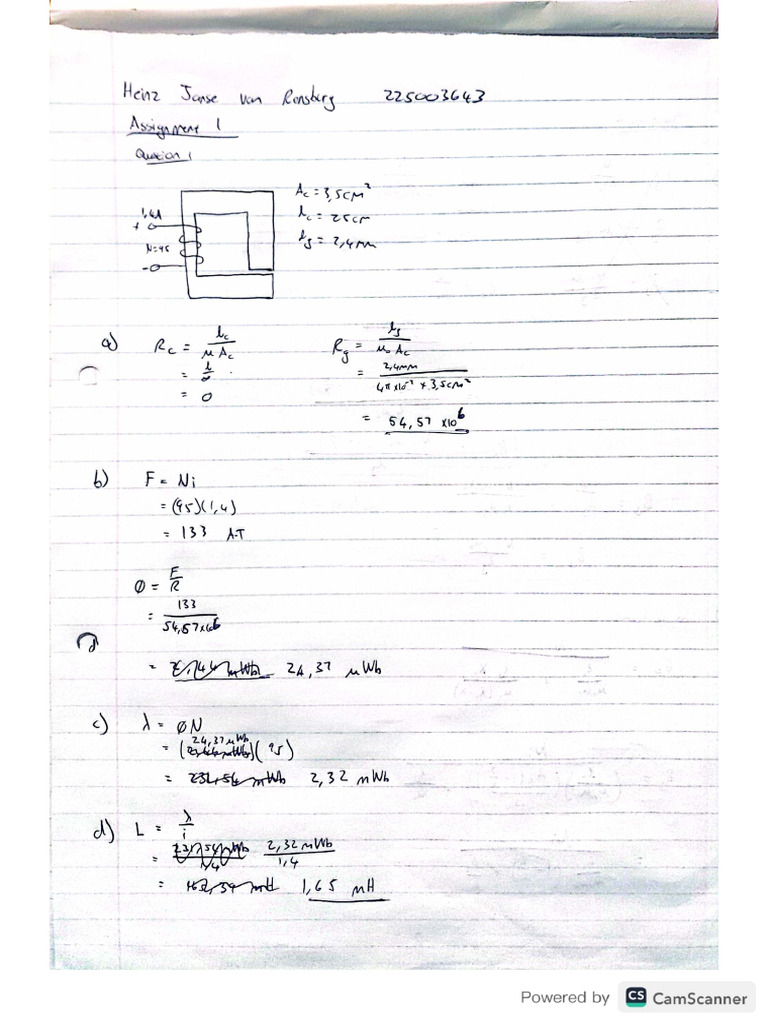 Heinz Janse van Rensberg 225003643
Assignment 1
Question 1
1,4A
+
N=95
-
Ac = 3,5cm²
lc = 25cm
lg = 2,4mm
a) Rc = lc / μ Ac
= l / ∞
= 0
Rg = lg / μ₀ Ac
= 2,4mm / 4π x10⁻⁷ x 3,5cm²
= 54,57 x10⁶
b) F = Ni
= (95)(1,4)
= 133 A.T
Ø = F / R
= 133 / 54,57x10⁶
= 24,37 μWb
c) λ = ØN
= (24,37 μWb)(95)
= 2,32 mWb
d) L = λ / i
= 2,32mWb / 1,4
= 1,65 mH
Powered by CS CamScanner